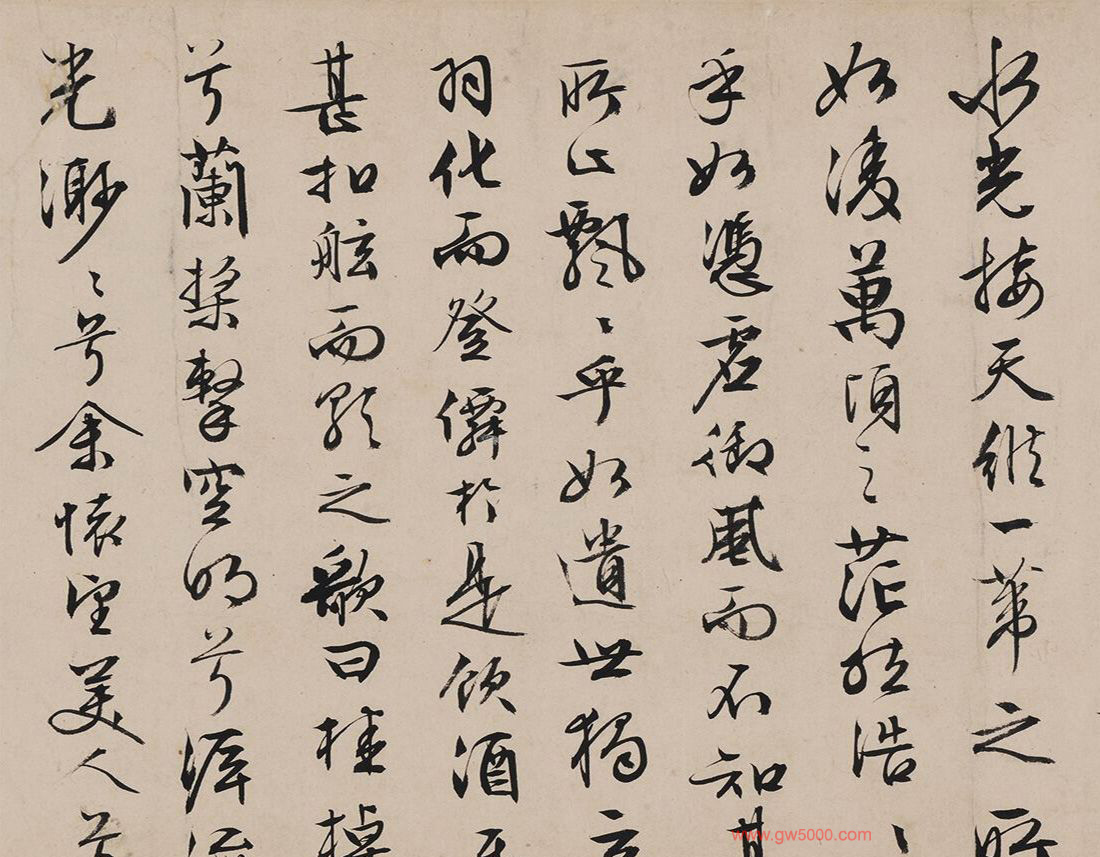 水光接天縱一葦之所
如凌萬頃之茫然浩〻
乎如憑虛御風而不知其
所止飄〻乎如遺世獨立
羽化而登僊於是飲酒樂
甚扣舷而歌之歌曰桂棹
兮蘭槳擊空明兮泝流
光渺〻兮余懷望美人兮
www.gw5000.com